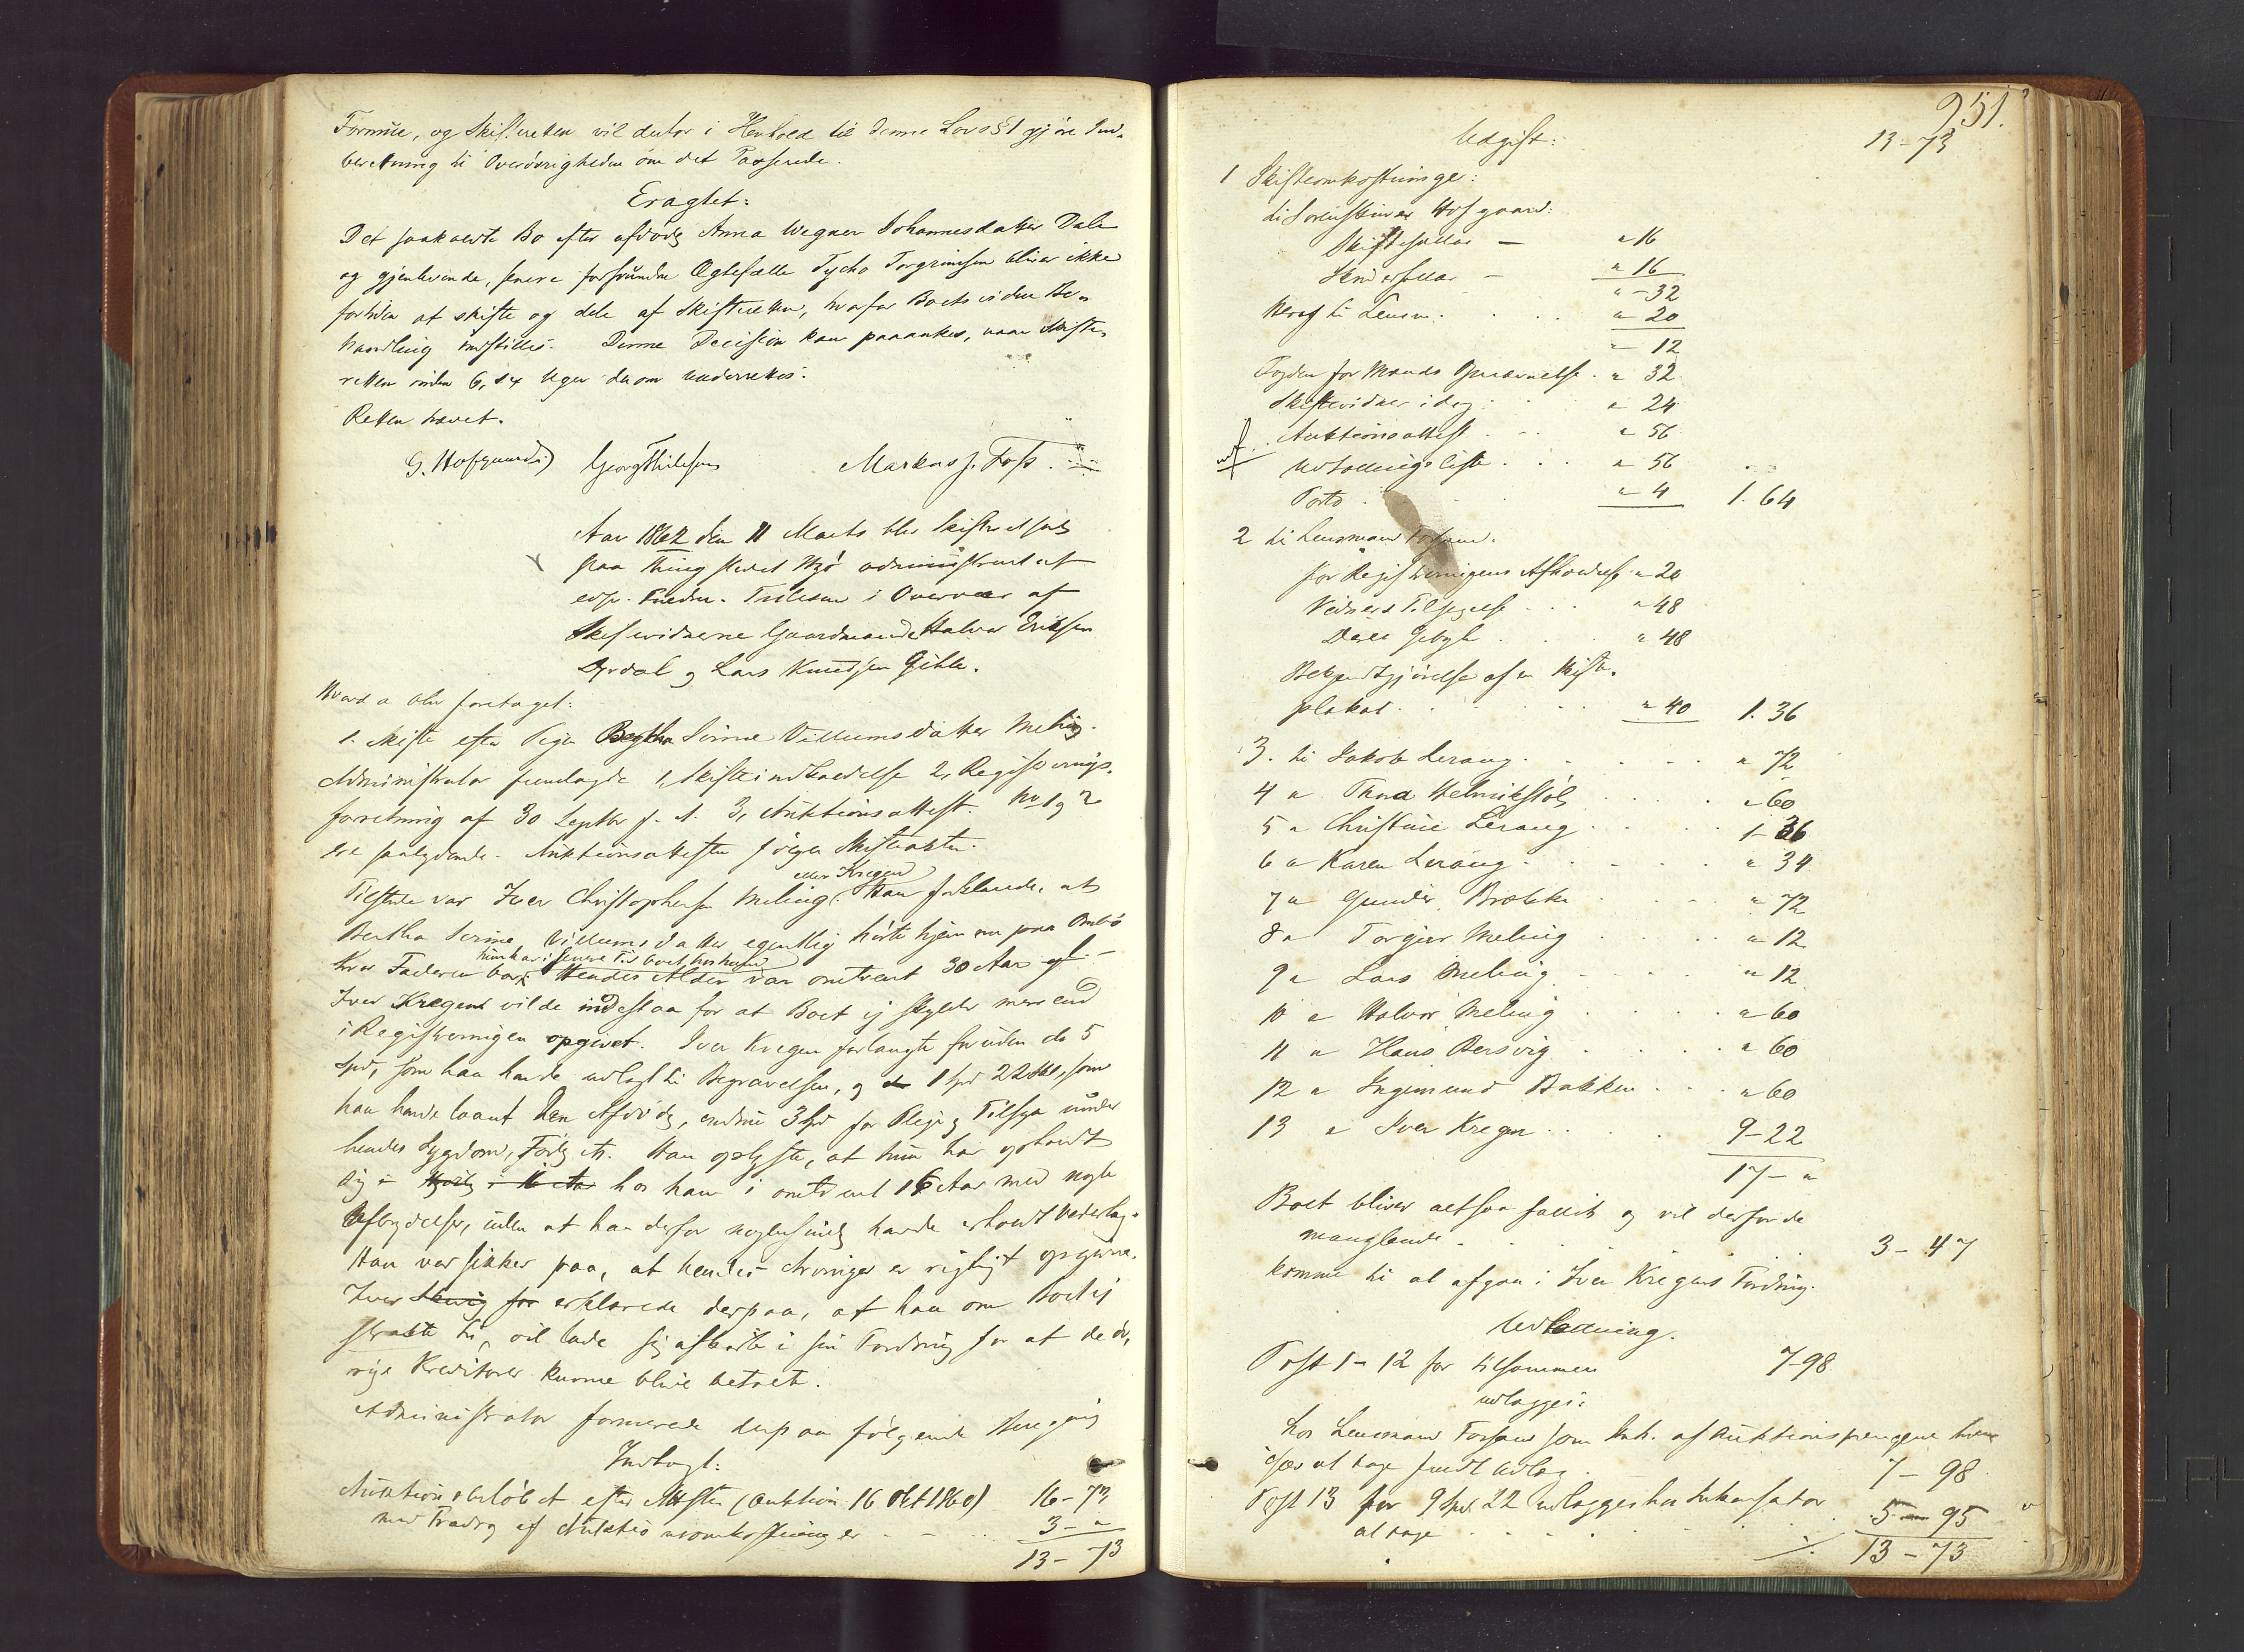 Formue, og Skifteretten vil derfor i Henhold til denne Lovs § 1 gjöre Ind-
beretning til Overövrigheden om det Passerede.
Eragtet:
Det saakaldte Bo efter afdöde Anna Wegner Johannesdatter Dale
og gjenlevende, senere forsvundne Ægtefælle Tycho Torgrimsen bliver ikke
forhen at skifte og dele af Skifteretten, hvorfor Boets videre Be-
handling indstilles. Denne Decision kan paaankes, naar Skifte-
retten inden 6, sex Uger derom underrettes.
Retten hævet.
G. Hofgaard Georg Thilesen Markus J. Foss
Aar 1862 den 11 Marts blev Skifteret sat
paa Thingstedet administreret af
i Overvær af
Skiftevidnerne Gaardmænd Halvor Eriksen
Dyrdal og Lars Knudsen Gilhle.
Hvorda blev foretaget:
1. Skifte efter Pigen Bertha Serine Villumsdatter Meling.
Administrator fremlagde 1, Skifteindkaldelse 2, Registrerings-
forretning af 30 Septbr f. A. 3, Auktionsattest. No 1 og 2
ere saalydende. Auktionsattesten fölger Skifteakten.
eller Kregen
Tilstede var Iver Christophersen Meling. Han forklarede, at
Bertha Serine Villumsdatter egentlig hörte hjem nu paa Ombö
hun har i senere Tid boet hos ham
hvor Faderen bor. Hendes Alder var omtrent 30 Aar gl.
Iver Kregen vilde indestaa for at Boet ej skylder mere end
i Registreringen opgivet. Iver Kregen forlangte foruden de 5
Spd, som han havde udlagt til Begravelsen, og 1 Spd 22 Skl, som
han havde laant den Afdöde, endnu 3 Spd for Pleje og Tilsyn under
hendes Sygdom, Föde etc. Han oplyste, at hun har opholdt
sig hos ham i omtrent 16 Aar med nogle
Afbrydelser, uden at han derfor nogensinde havde erholdt Vederlag.
Han var sikker paa, at hendes Arvinger er rigtigt opgivne.
Iver erklærede derpaa, at han om Boet ej
strakte til, vil lade sig afkorte i sin Fordring for at de öv-
rige Kreditorer kunne blive betalt.
Administrator formerede derpaa fölgende Beregning
Indtægt:
Auktionsbelöbet efter Attesten (Auktion 16 Okt 1860) 16-73
med Fradrag af Auktionsomkostninger 3-"
13-73
951.
Udgift: 13-73
1 Skifteomkostninger:
til Sorenskriver Hofgaard:
Skiftesallar — " 16
Skriversallar — " 16
" - 32
Heraf til Lensm. " 20
" 12
Fogden for Mænds Opnævnelse " 32
Skiftevidner idag " 24
Auktionsattest " 56
Udlodningsliste " 56
Porto " 4 1. 64
2 til Lensmand Forsand.
for Registreringens Afholdelse " 20
Vidners Tilsigelse " 48
Deres Gebyr " 48
Bekjendtgjörelse af en Skifte-
plakat " 40 1. 36
3. til Jakob Lerang " 72
4 " Thora Helmikstöl " 60
5 " Christine Lerang 1-36
6 " Karen Lerang " 34
7 " Gunder Brække " 72
8 " Torgier Meling " 12
9 " Lars Meling " 12
10 " Halvor Meling " 60
11 " Hans Bersvig " 60
12 " Ingemund Bakken " 60
13 " Iver Kregen 9-22
17-"
Boet bliver altsaa fallit og vil derfor de
manglende 3-47
komme til at afgaa i Iver Kregens Fordring.
Udlodning.
Post 1-12 for tilsammen 7-98
udlægges:
hos Lensmand Forsand som Ink. af Auktionspengene hver
især at tage fuldt Udlæg 7-98
Post 13 for 9 Spd. 22 udlægges hos Inkassator
at tage 5-95
13-73